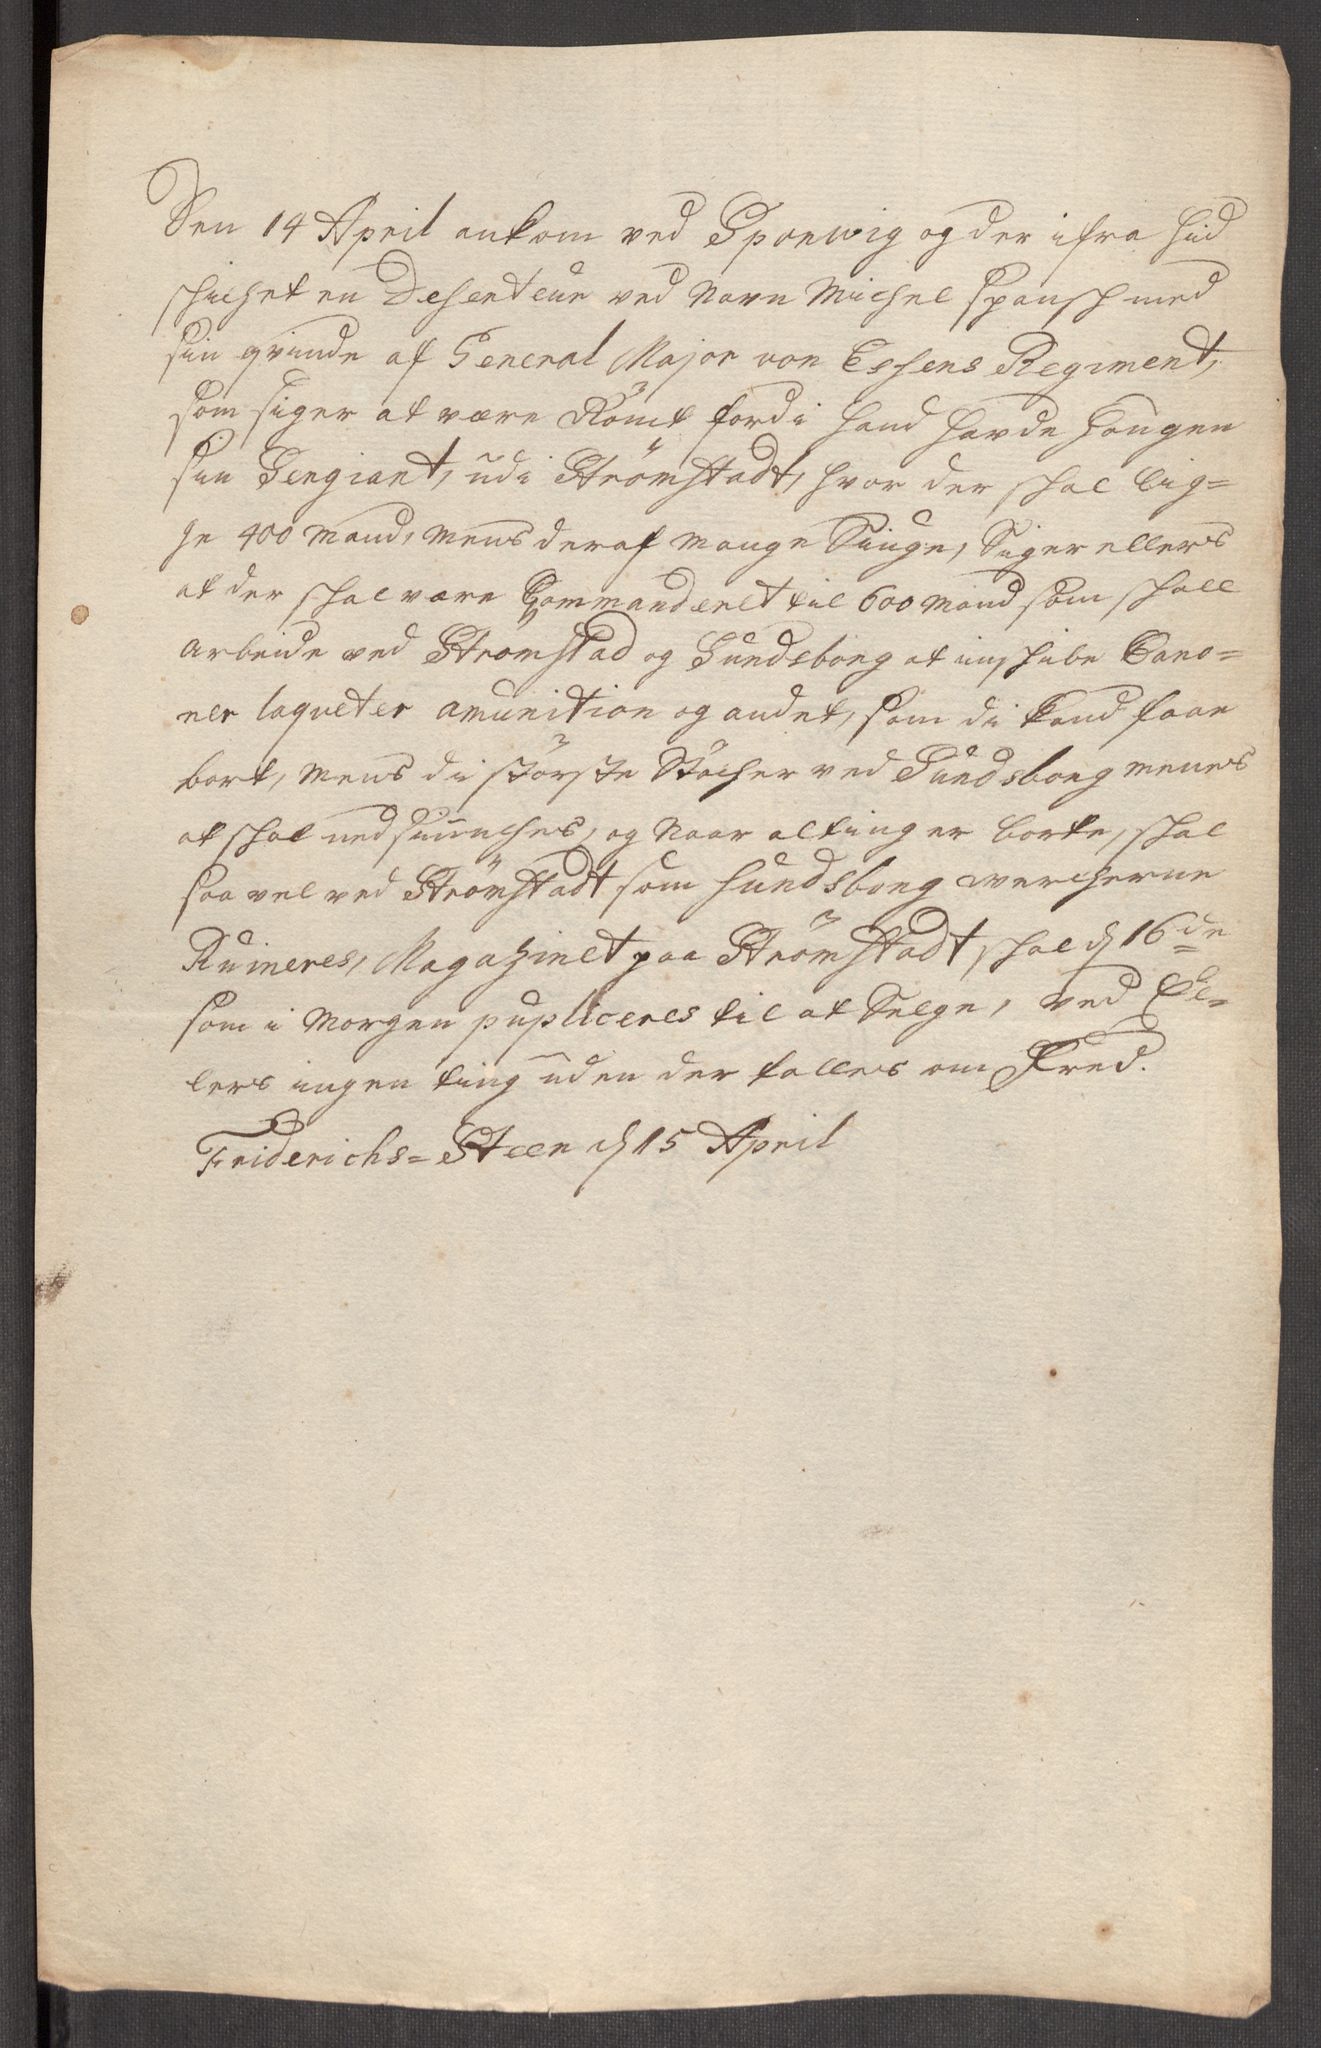 Den 14 April ankom ved Sponwig og der ifra hid
schichet en Deserteur ved Navn Michel Spansch med
sin qvinde af General Major von Essens Regiment,
som siger at være Römt fordi hand havde hougen
sin Sergiant, udi Strömstadt, hvor der schal lig=
ge 400 Mand, mens deraf mange Siuge, Siger ellers
at der schal være Commanderet til 600 Mand som schall
arbeide ved Strömstad og Sundsborg at inschibe Cano=
ner laqueter amunition og andet, som di kand faae
bort, mens di störste Stöcher ved Sundsborg menes
at schal nedsiunches, og Naar alting er borte, schal
saa vel ved Strömstadt som Sundsborg wercherne
Ruineres, Magazinet paa Strömstadt schal d 16de
som i Morgen pupliceres til at Selge, ved El=
lers ingen ting uden der talles om Fred.
Friderichs=Steen d 15 April